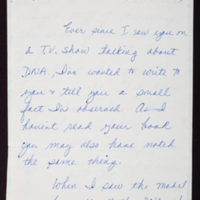 Ever since I saw you on
a T.V. show talking about
DNA, I've wanted to write to
you & tell you a small
fact I've observed. As I
havent read your book
you may also have noted
the same thing.
When I saw the model